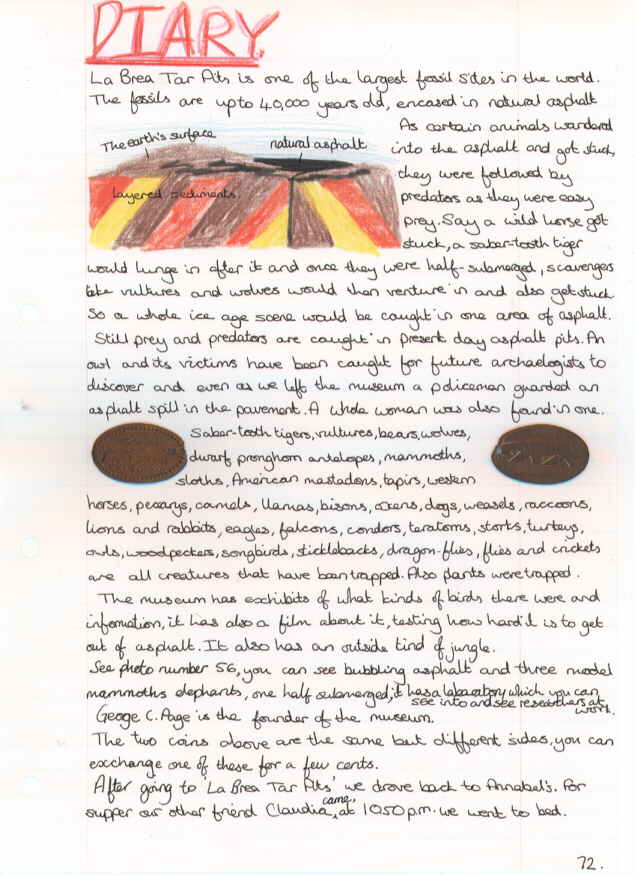 DIARY.
La Brea Tar Pits is one of the largest fossil sites in the world.
The fossils are upto 40,000 years old, encased in natural asphalt
The earth's surface
natural asphalt
layered sediments.
As certain animals wandered
into the asphalt and got stuck,
they were followed by
predators as they were easy
prey. Say a wild horse got
stuck, a saber-tooth tiger
would lunge in after it and once they were half-submerged, scavengers
like vultures and wolves would then venture in and also get stuck
So a whole ice age scene would be caught in one area of asphalt.
Still prey and predators are caught in present day asphalt pits. An
owl and its victims have been caught for future archaelogists to
discover and even as we left the museum a policeman guarded an
asphalt spill in the pavement. A whole woman was also found in one.
Saber-tooth tigers, vultures, bears, wolves,
dwarf pronghorn antelopes, mammoths,
sloths, American mastadons, tapirs, western
horses, peccarys, camels, llamas, bisons, oxens, dogs, weasels, raccoons,
lions and rabbits, eagles, falcons, condors, teratorns, storks, turkeys,
owls, woodpeckers, songbirds, sticklebacks, dragon-flies, flies and crickets
are all creatures that have been trapped. Also plants were trapped.
The museum has exhibits of what kinds of birds there were and
information, it has also a film about it, testing how hard it is to get
out of asphalt. It also has an outside kind of jungle.
See photo number 56, you can see bubbling asphalt and three model
mammoths elephants, one half submerged, it has a laboratory which you can
see into and see researchers at
work.
George C. Page is the founder of the museum.
The two coins above are the same but different sides, you can
exchange one of these for a few cents.
After going to 'La Brea Tar Pits' we drove back to Annabel's. For
supper our other friend Claudia came, at 10 50 p.m. we went to bed.
72.